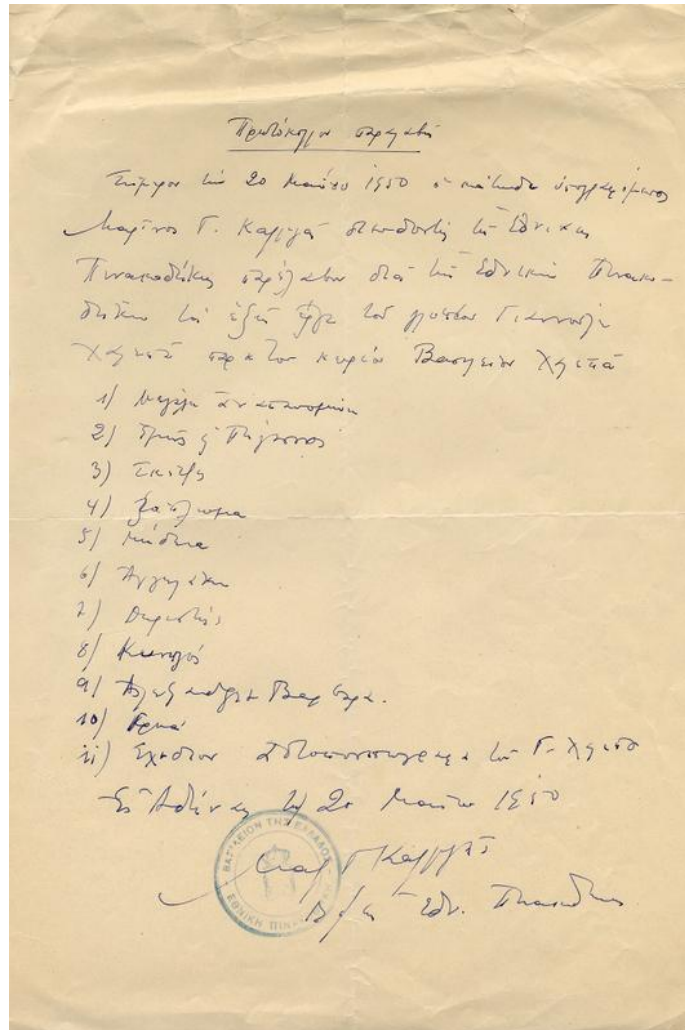 Πρωτόκολλον παραλαβῆς
Σήμερον τὴν 20 Μαΐου 1950 ὁ κάτωθι ὑπογραφόμενος
Μαρῖνος Γ. Καλλιγᾶς διευθυντὴς τῆς Ἐθνικῆς
Πινακοθήκης παρέλαβον διὰ τὴν Ἐθνικὴν Πινακο-
θήκην τὰ ἑξῆς ἔργα τοῦ γλύπτου Γιαννούλη
Χαλεπᾶ παρὰ τοῦ κυρίου Βασιλείου Χαλεπᾶ
1) Μεγάλη ἀναπαυομένη
2) Ἑρμῆς Πήγασος
3) Σκέψη
4) Ξάπλωμα
5) Μήδεια
6) Ἀγγελάκι
7) Θεριστής
8) Κυνηγός
9) Ἀλεξάνδρα Βαρβάρα.
10)
11) Σχέδιον Αὐτοπροσωπογραφία τοῦ Γ. Χαλεπᾶ
Ἐν Ἀθήναις τῇ 20 Μαΐου 1950
Μαρ Γ Καλλιγᾶς
Δ/τὴς Ἐθν. Πινακοθήκης
ΒΑΣΙΛΕΙΟΝ ΤΗΣ ΕΛΛΑΔΟΣ
ΕΘΝΙΚΗ ΠΙΝΑΚΟΘΗΚΗ